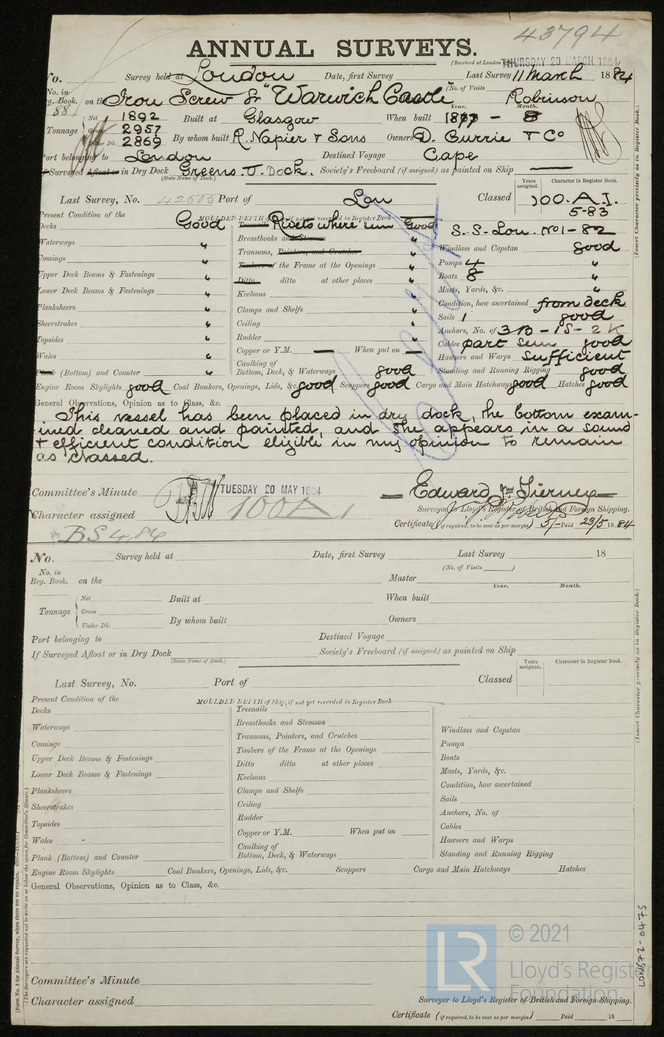 43794
ANNUAL SURVEYS.
(Received at London THURSDAY 20 MARCH 1884
No. Survey held at London Date, first Survey Last Survey 11 March 1884
(No. of Visits )
No. in Reg. Book. 88 on the Iron Screw Sr "Warwick Castle" Robinson
Year. Month.
Tonnage Net 1892 Built at Glasgow When built 1877 - 8
2957
Under Dk. 2869 By whom built R. Napier & Sons Owners D. Currie & Co
Port belonging to London Destined Voyage Cape
If Surveyed Afloat or in Dry Dock Greens U. Dock. Society's Freeboard (if assigned) as painted on Ship
(State Name of Dock.)
Last Survey, No. Port of Lon Classed 100.A.1.
Years assigned. Character in Register Book.
5-83
Present Condition of the MOULDED DEPTH of Ship, if not yet recorded in Register Book
Decks Good Rivets where seen Good S.S. Lon. No1-82
Waterways " Breasthooks and Stemson " Windlass and Capstan good
Comings " Transoms, Pointers, and Crutches Pumps 4 "
Upper Deck Beams & Fastenings " Timbers of the Frame at the Openings " Boats 8 "
Lower Deck Beams & Fastenings " Ditto ditto at other places " Masts, Yards, &c. "
Planksheers " Keelsons " Condition, how ascertained from deck
Sheerstrakes " Clamps and Shelfs " Sails 1 good
Topsides " Ceiling " Anchors, No. of 3B - 1S - 2K
Wales " Rudder " Cables part seen good
Plank (Bottom) and Counter " Copper or Y.M. When put on Hawsers and Warps Sufficient
Caulking of Bottom, Deck, & Waterways good Standing and Running Rigging good
Engine Room Skylights good Coal Bunkers, Openings, Lids, &c. good Scuppers good Cargo and Main Hatchways good Hatches good
General Observations, Opinion as to Class, &c.
This vessel has been placed in dry dock, the bottom exam-
ined cleaned and painted, and she appears in a sound
& efficient condition eligible in my opinion to remain
as classed.
Committee's Minute TUESDAY 20 MAY 1884 Edward Tierney
Character assigned 100A1 Surveyor to Lloyd's Register of British and Foreign Shipping.
BS 4.84 Certificate (if required, to be sent as per margin) 5/- Paid 23/5 1884
No. Survey held at Date, first Survey Last Survey 18
(No. of Visits )
No. in Reg. Book. on the Master
Year. Month.
Tonnage Net Built at When built
Gross
Under Dk. By whom built Owners
Port belonging to Destined Voyage
If Surveyed Afloat or in Dry Dock Society's Freeboard (if assigned) as painted on Ship
(State Name of Dock.)
Years assigned. Character in Register Book.
Last Survey, No. Port of Classed
Present Condition of the MOULDED DEPTH of Ship, if not yet recorded in Register Book
Decks Treenails
Waterways Breasthooks and Stemson Windlass and Capstan
Comings Transoms, Pointers, and Crutches Pumps
Upper Deck Beams & Fastenings Timbers of the Frame at the Openings Boats
Lower Deck Beams & Fastenings Ditto ditto at other places Masts, Yards, &c.
Planksheers Keelsons Condition, how ascertained
Sheerstrakes Clamps and Shelfs Sails
Topsides Ceiling Anchors, No. of
Wales Rudder Cables
Plank (Bottom) and Counter Copper or Y.M. When put on Hawsers and Warps
Caulking of Bottom, Deck, & Waterways Standing and Running Rigging
Engine Room Skylights Coal Bunkers, Openings, Lids, &c. Scuppers Cargo and Main Hatchways Hatches
General Observations, Opinion as to Class, &c.
Committee's Minute
Character assigned Surveyor to Lloyd's Register of British and Foreign Shipping.
Certificate (if required, to be sent as per margin) Paid 18
(Insert Character precisely as in Register Book.)
(Insert Character precisely as in Register Book.)
LON679-0475
LR
© 2021
Lloyd's Register
Foundation